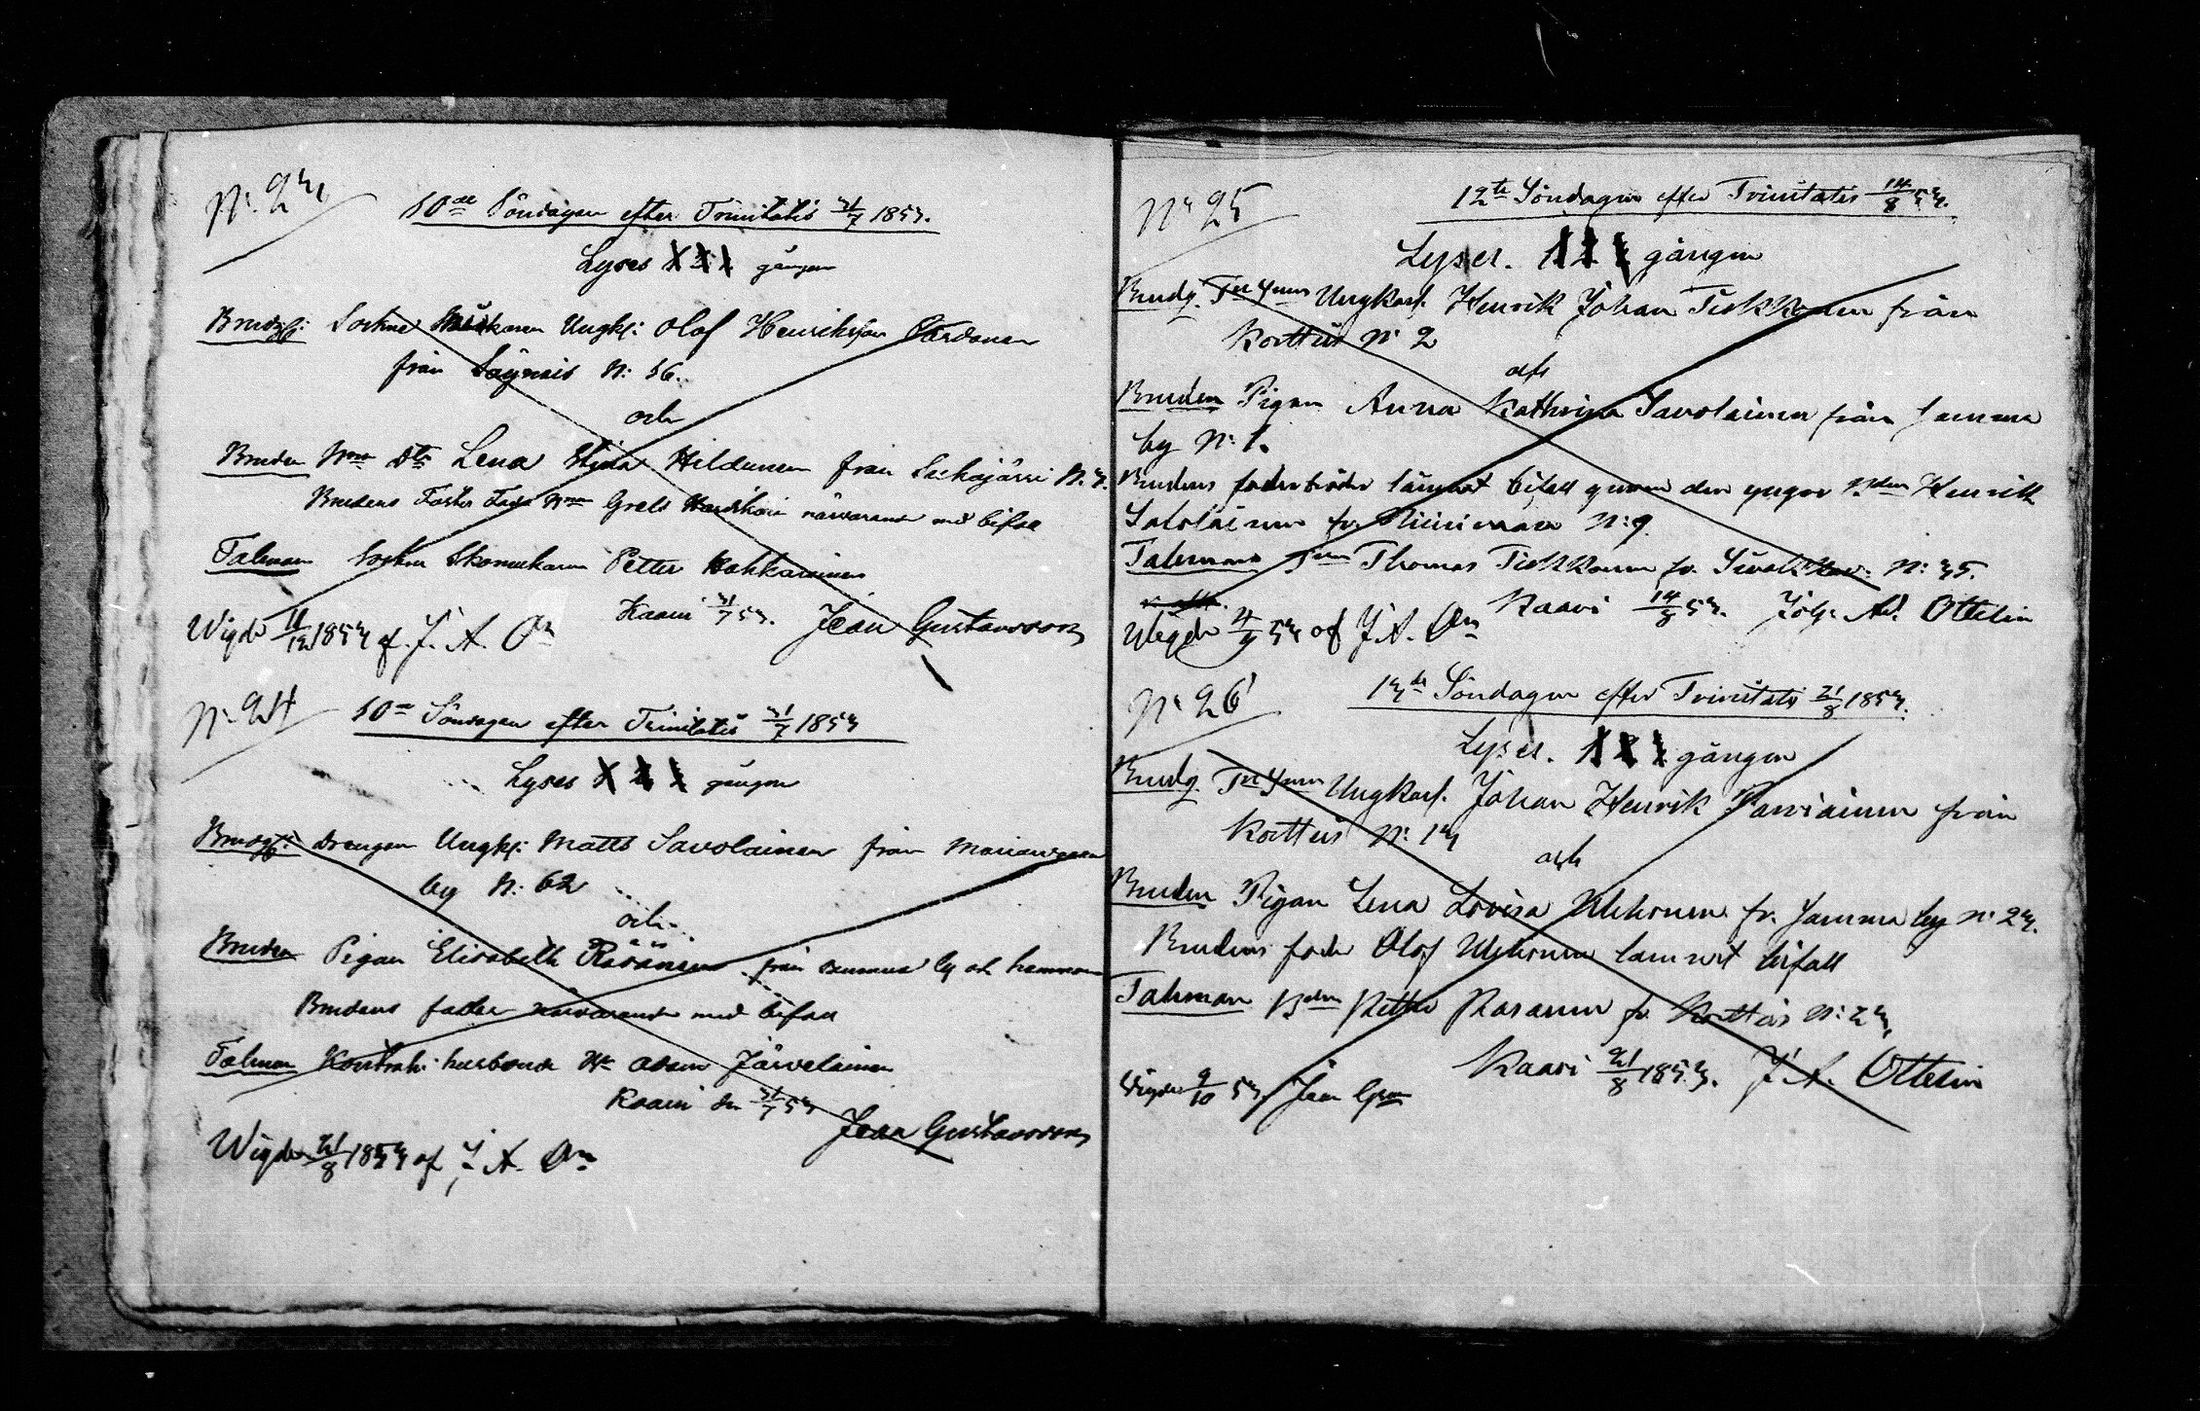 N: 23
10de Söndagen efter Trinitatis 31/7 1853.
Lyses X X X gången
Brudg: Sockne Skomakaren Ungk: Olof Henriksson Vordanen
från Säyneis N: 16.
och
Bruden Dtr Lena Stina Hildunen från N: 3.
Brudens Foster närvarande med bifall
Talman Sockne Skomakaren Petter Kohkarainen
Kaavi 31/7 53. Jean Gustavsson
Wigde 11/12 1853 af J. A. On
N: 24
10de Söndagen efter Trinitatis 31/7 1853
Lyses X X X gången
Brudg: Drengen Ungk: Matts Savolainen från
by N: 62
och
Bruden Pigan Elisabeth Räsänen från by och
Brudens fader närvarande med bifall
Talman husbonde Adam Järvelainen
Kaavi den 31/7 53 Jean Gustavsson
Wigde 21/8 1853 af J. A. On
N: 25
12te Söndagen efter Trinitatis 14/8 53.
Lyser. 1 2 3 gången
Brudg. Ungkarl. Henrik Johan Tiskkonen från
Kortteis N: 2
och
Bruden Pigan Anna Kathrina Savolainen från Jamma
by N: 1.
Brudens faderbröder lämnat bifall genom den yngre Bden Henrik
Savolainen fr. N: 9.
Talman Thomas Tiskkonen fr. N: 35.
Kaavi 14/8 53. Joh. Ad. Ottelin
Wigde 4/9 53 af J. A. On
N: 26
13de Söndagen efter Trinitatis 21/8 1853.
Lyser. 1 2 3 gången
Brudg. Ungkarl. Johan Henrik Parviainen från
Kortteis N: 13
och
Bruden Pigan Lena Lovisa fr. Jamma by N: 23.
Brudens fader Olof lämnat bifall
Talman Bden Petter Räsänen fr. Kortteis N: 23,
Kaavi 21/8 1853. J. A. Ottelin
Wigde 9/10 53 Jean Gson